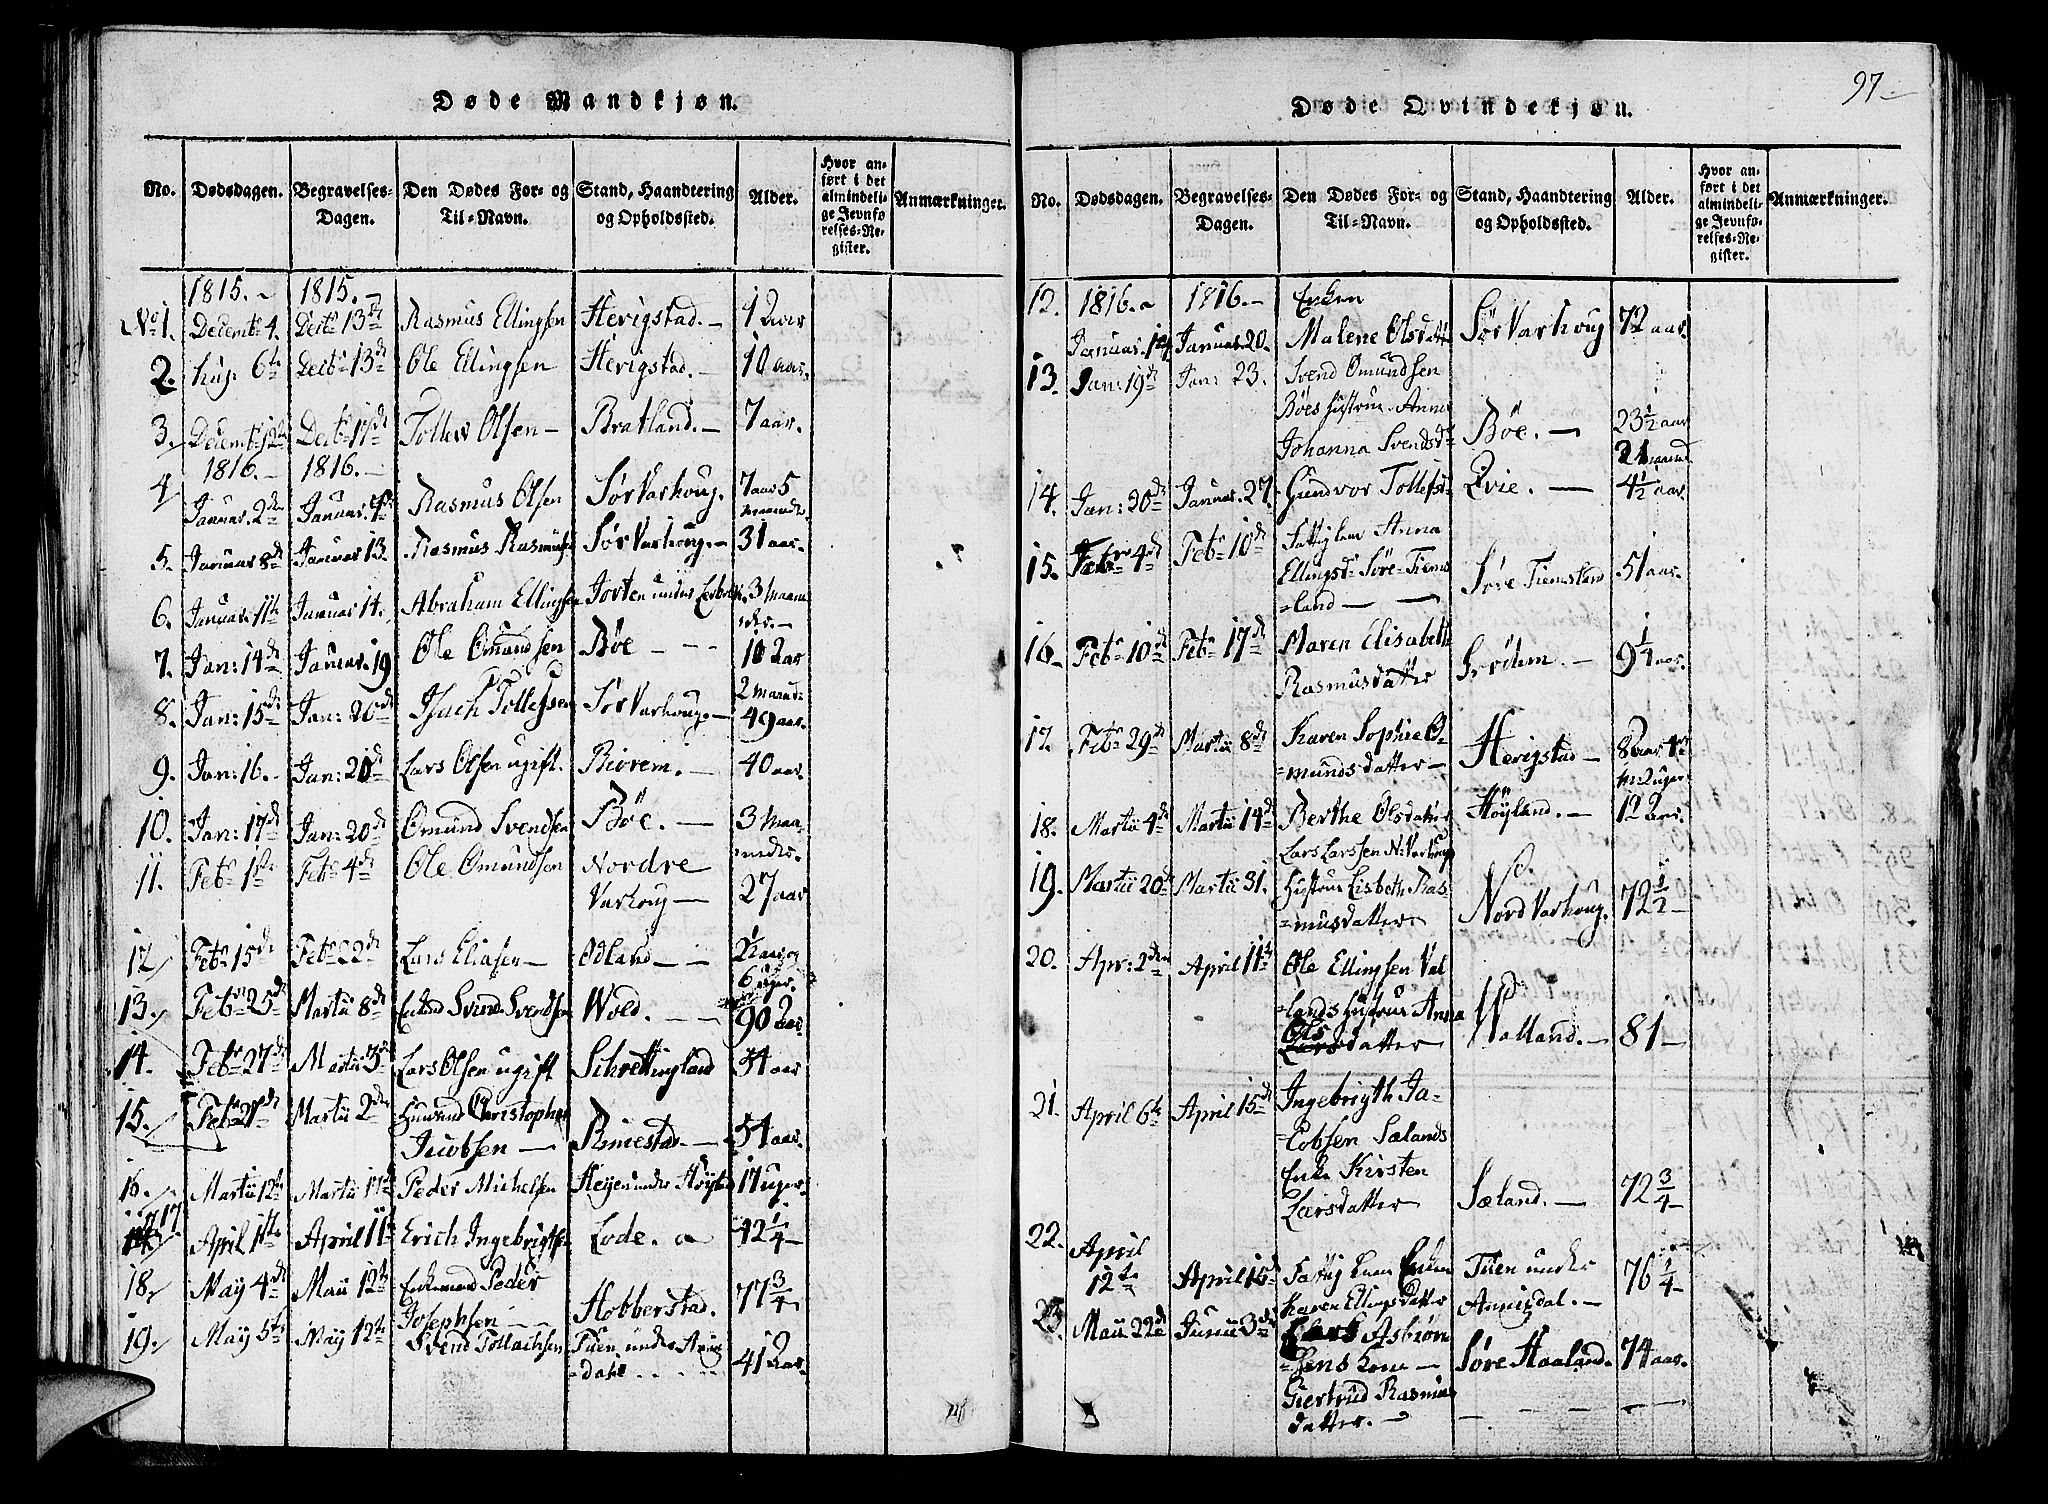 97
Døde Mandkjøn.
No. Dødsdagen. Begravelses-Dagen. Den Dødes For- og Til-Navn. Stand, Haandtering og Opholdssted. Alder. Hvor anført i det almindelige Jevnførelses-Register. Anmærkninger.
1815. 1815.
No 1. Decemb. 4. Decb. 13de Rasmus Ellingsen Herigstad. 1 Aar
2. 6te Decb. 13de Ole Ellingsen Herigstad. 10 aar.
3. Decemb. 12te Decb. 17de Tollew Olsen Bratland. 7 aar.
1816. 1816.
4 Januar. 2den Januar. Rasmus Olsen Sør Varhoug. 7 aar 5
maaneder.
5. Januar 8de Januar 13. Rasmus Rasmus Sør Varhoug. 31 aar.
6. Januar. 11te Januar 14. Abraham Ellingsen under 3 maane
der.
7. Jan: 14de Januar. 19 Ole Omundsen Bøe 10 Aar
2 maand:
8. Jan: 15de Jan: 20de Isach Tollefsen Sør Varhoug. 49 aar.
9. Jan: 16. Jan: 20de Lars Olsen ugift. Biorem. 40 aar.
10. Jan: 17de Jan: 20de Omund Svendsen Bøe. 3 maa
neder.
11. Feb. 1ste Feb. 4de Ole Omundsen Nordre
Varhoug 27 aar
12 Feb. 15de Feb. 22de Lars Eliasen Odland
6 uger.
13. Feb. 25de Martii 8de Svend Svendsen Wold. 90 Aar
14. Feb. 27de Martii Lars Olsen ugift Schrettingland 34 aar
15. Feb. 27de Martii 2den Christopher
Jacobsen Rimestad. 54 aar.
16. Martii 12te Martii 17de Peder Michelsen under 17 uger
17 April 1ste April 11te Erich Ingebrigts Lode. 42 1/4
18. May 4de Maii 12te Enkemand Peder
Josephsen Hobberstad. 77 3/4
19. May 5te May 12te Svend Tollachsen Tuen under
dahl 41 Aar.
Døde Qvindekjøn.
No. Dødsdagen. Begravelses-Dagen. Den Dødes For- og Til-Navn. Stand, Haandtering og Opholdssted. Alder. Hvor anført i det almindelige Jevnførelses-Register. Anmærkninger.
12. 1816. 1816. Enken
Januar. Januar. 20. Malene Olsdatt Sør Varhoug 72 aar.
13. Jan: 19de Jan: 23. Svend Omundsen
Bøes hustrue Anne
Johanna Svendsd Bøe. 23 1/2 aar
maand
14. Jan: 20de Januar. 27. Gundvor Tollefsd Qvie. 4 1/2 aar.
15. Feb. 4de Feb. 10de Fattiglem Anna
Ellingsd Søre Tiems
land Søre Tiemsland 51 aar.
16. Feb. 10de Feb. 17de Maren Elisabeth
Rasmusdatter Grødem. 9 1/4 aar.
17. Feb. 29de Martii 8de Karen Sophie O
mundsdatter Herigstad
18. Martii 4de Martii 14de Berthe Olsdatter Høyland. 12 Aar.
19. Martii 20de Martii 31. Lars Larssen N: Varhoug
hustrue Lisbeth Ras
musdatter Nord Varhoug. 72 1/2
20. Apr: 2den April 11te Ole Ellingsen Val
lands hustrue Anna
Ols
Larsdatter Walland. 81
21. April 6te April 15de Ingebrigth Ja
cobsen Sælands
Enke Kirsten
Larsdatter Sæland. 72 3/4
22. April
12te April 15de Enken
Karen Ellingsdatter Tuen under
76 1/4
23. Maii 22de Junii 3de Asbiørn
sens Kone
Giertrud Rasmus
datter. Søre Haaland. 74 aar.